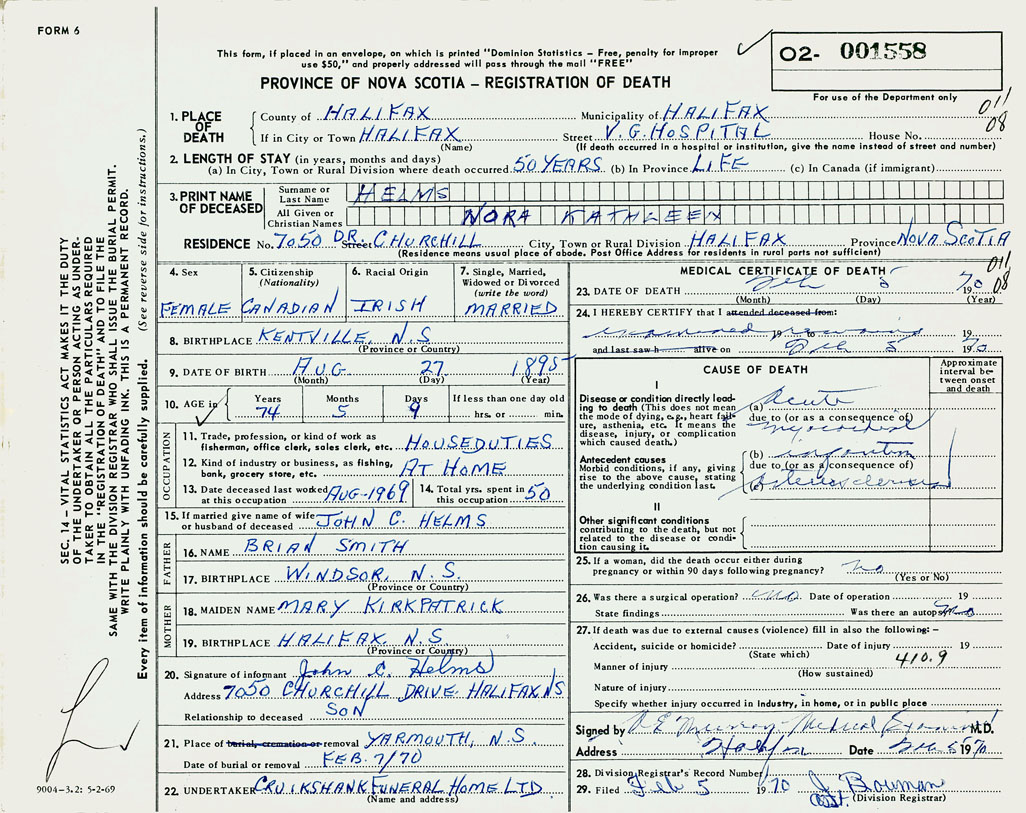 FORM 6
This form, if placed in an envelope, on which is printed "Dominion Statistics – Free, penalty for improper
use $50," and properly addressed will pass through the mail "FREE"
PROVINCE OF NOVA SCOTIA – REGISTRATION OF DEATH
02- 001558
For use of the Department only
011
08
1. PLACE OF DEATH
County of HALIFAX Municipality of HALIFAX
If in City or Town HALIFAX Street V.G. HOSPITAL House No.
(Name) (If death occurred in a hospital or institution, give the name instead of street and number)
2. LENGTH OF STAY (in years, months and days)
(a) In City, Town or Rural Division where death occurred 50 YEARS (b) In Province LIFE (c) In Canada (if immigrant)
3. PRINT NAME OF DECEASED
Surname or Last Name HELMS
All Given or Christian Names NORA KATHLEEN
RESIDENCE No. 7050 Street DR. CHURCHILL City, Town or Rural Division HALIFAX Province NOVA SCOTIA
(Residence means usual place of abode. Post Office Address for residents in rural parts not sufficient)
4. Sex
FEMALE
5. Citizenship
(Nationality)
CANADIAN
6. Racial Origin
IRISH
7. Single, Married,
Widowed or Divorced
(write the word)
MARRIED
8. BIRTHPLACE KENTVILLE, N.S
(Province or Country)
9. DATE OF BIRTH AUG 27 1895
(Month) (Day) (Year)
10. AGE in
Years Months Days If less than one day old
74 5 9 hrs. or min.
OCCUPATION
11. Trade, profession, or kind of work as
fisherman, office clerk, sales clerk, etc. HOUSEDUTIES
12. Kind of industry or business, as fishing,
bank, grocery store, etc. AT HOME
13. Date deceased last worked
at this occupation AUG-1969
14. Total yrs. spent in
this occupation 50
15. If married give name of wife
or husband of deceased JOHN C. HELMS
FATHER
16. NAME BRIAN SMITH
17. BIRTHPLACE WINDSOR, N.S.
(Province or Country)
MOTHER
18. MAIDEN NAME MARY KIRKPATRICK
19. BIRTHPLACE HALIFAX. N.S
(Province or Country)
20. Signature of informant John C. Helms
Address 7050 CHURCHILL DRIVE. HALIFAX, NS
Relationship to deceased SON
21. Place of burial, cremation or removal YARMOUTH, N.S.
Date of burial or removal FEB. 7/70
22. UNDERTAKER CRUIKSHANK FUNERAL HOME LTD
(Name and address)
MEDICAL CERTIFICATE OF DEATH
011
08
23. DATE OF DEATH Feb 5 1970
(Month) (Day) (Year)
24. I HEREBY CERTIFY that I attended deceased from:
examined remains 19 to 19
and last saw h alive on Feb 5 1970
CAUSE OF DEATH
Approximate
interval be-
tween onset
and death
I
Disease or condition directly lead-
ing to death (This does not mean
the mode of dying, e.g., heart fail-
ure, asthenia, etc. It means the
disease, injury, or complication
which caused death.)
(a) Acute
due to (or as a consequence of)
myocardial
Antecedent causes
Morbid conditions, if any, giving
rise to the above cause, stating
the underlying condition last.
(b) infarction
due to (or as a consequence of)
(c) arteriosclerosis
II
Other significant conditions
contributing to the death, but not
related to the disease or condi-
tion causing it.
25. If a woman, did the death occur either during
pregnancy or within 90 days following pregnancy? no
(Yes or No)
26. Was there a surgical operation? no Date of operation 19
State findings Was there an autopsy no
27. If death was due to external causes (violence) fill in also the following: –
Accident, suicide or homicide? Date of injury 19
(State which)
410.9
Manner of injury
(How sustained)
Nature of injury
Specify whether injury occurred in industry, in home, or in public place
Signed by Murray Medical Examiner M.D.
Address Halifax Date Feb 5 1970
28. Division Registrar's Record Number
29. Filed Feb 5 1970 J. Bowman
(Division Registrar)
SEC. 14 – VITAL STATISTICS ACT MAKES IT THE DUTY
OF THE UNDERTAKER OR PERSON ACTING AS UNDER-
TAKER TO OBTAIN ALL THE PARTICULARS REQUIRED
IN THE "REGISTRATION OF DEATH" AND TO FILE THE
SAME WITH THE DIVISION REGISTRAR WHO SHALL ISSUE THE BURIAL PERMIT.
WRITE PLAINLY WITH UNFADING INK. THIS IS A PERMANENT RECORD.
Every item of information should be carefully supplied. (See reverse side for instructions.)
9004-3.2: 5-2-69